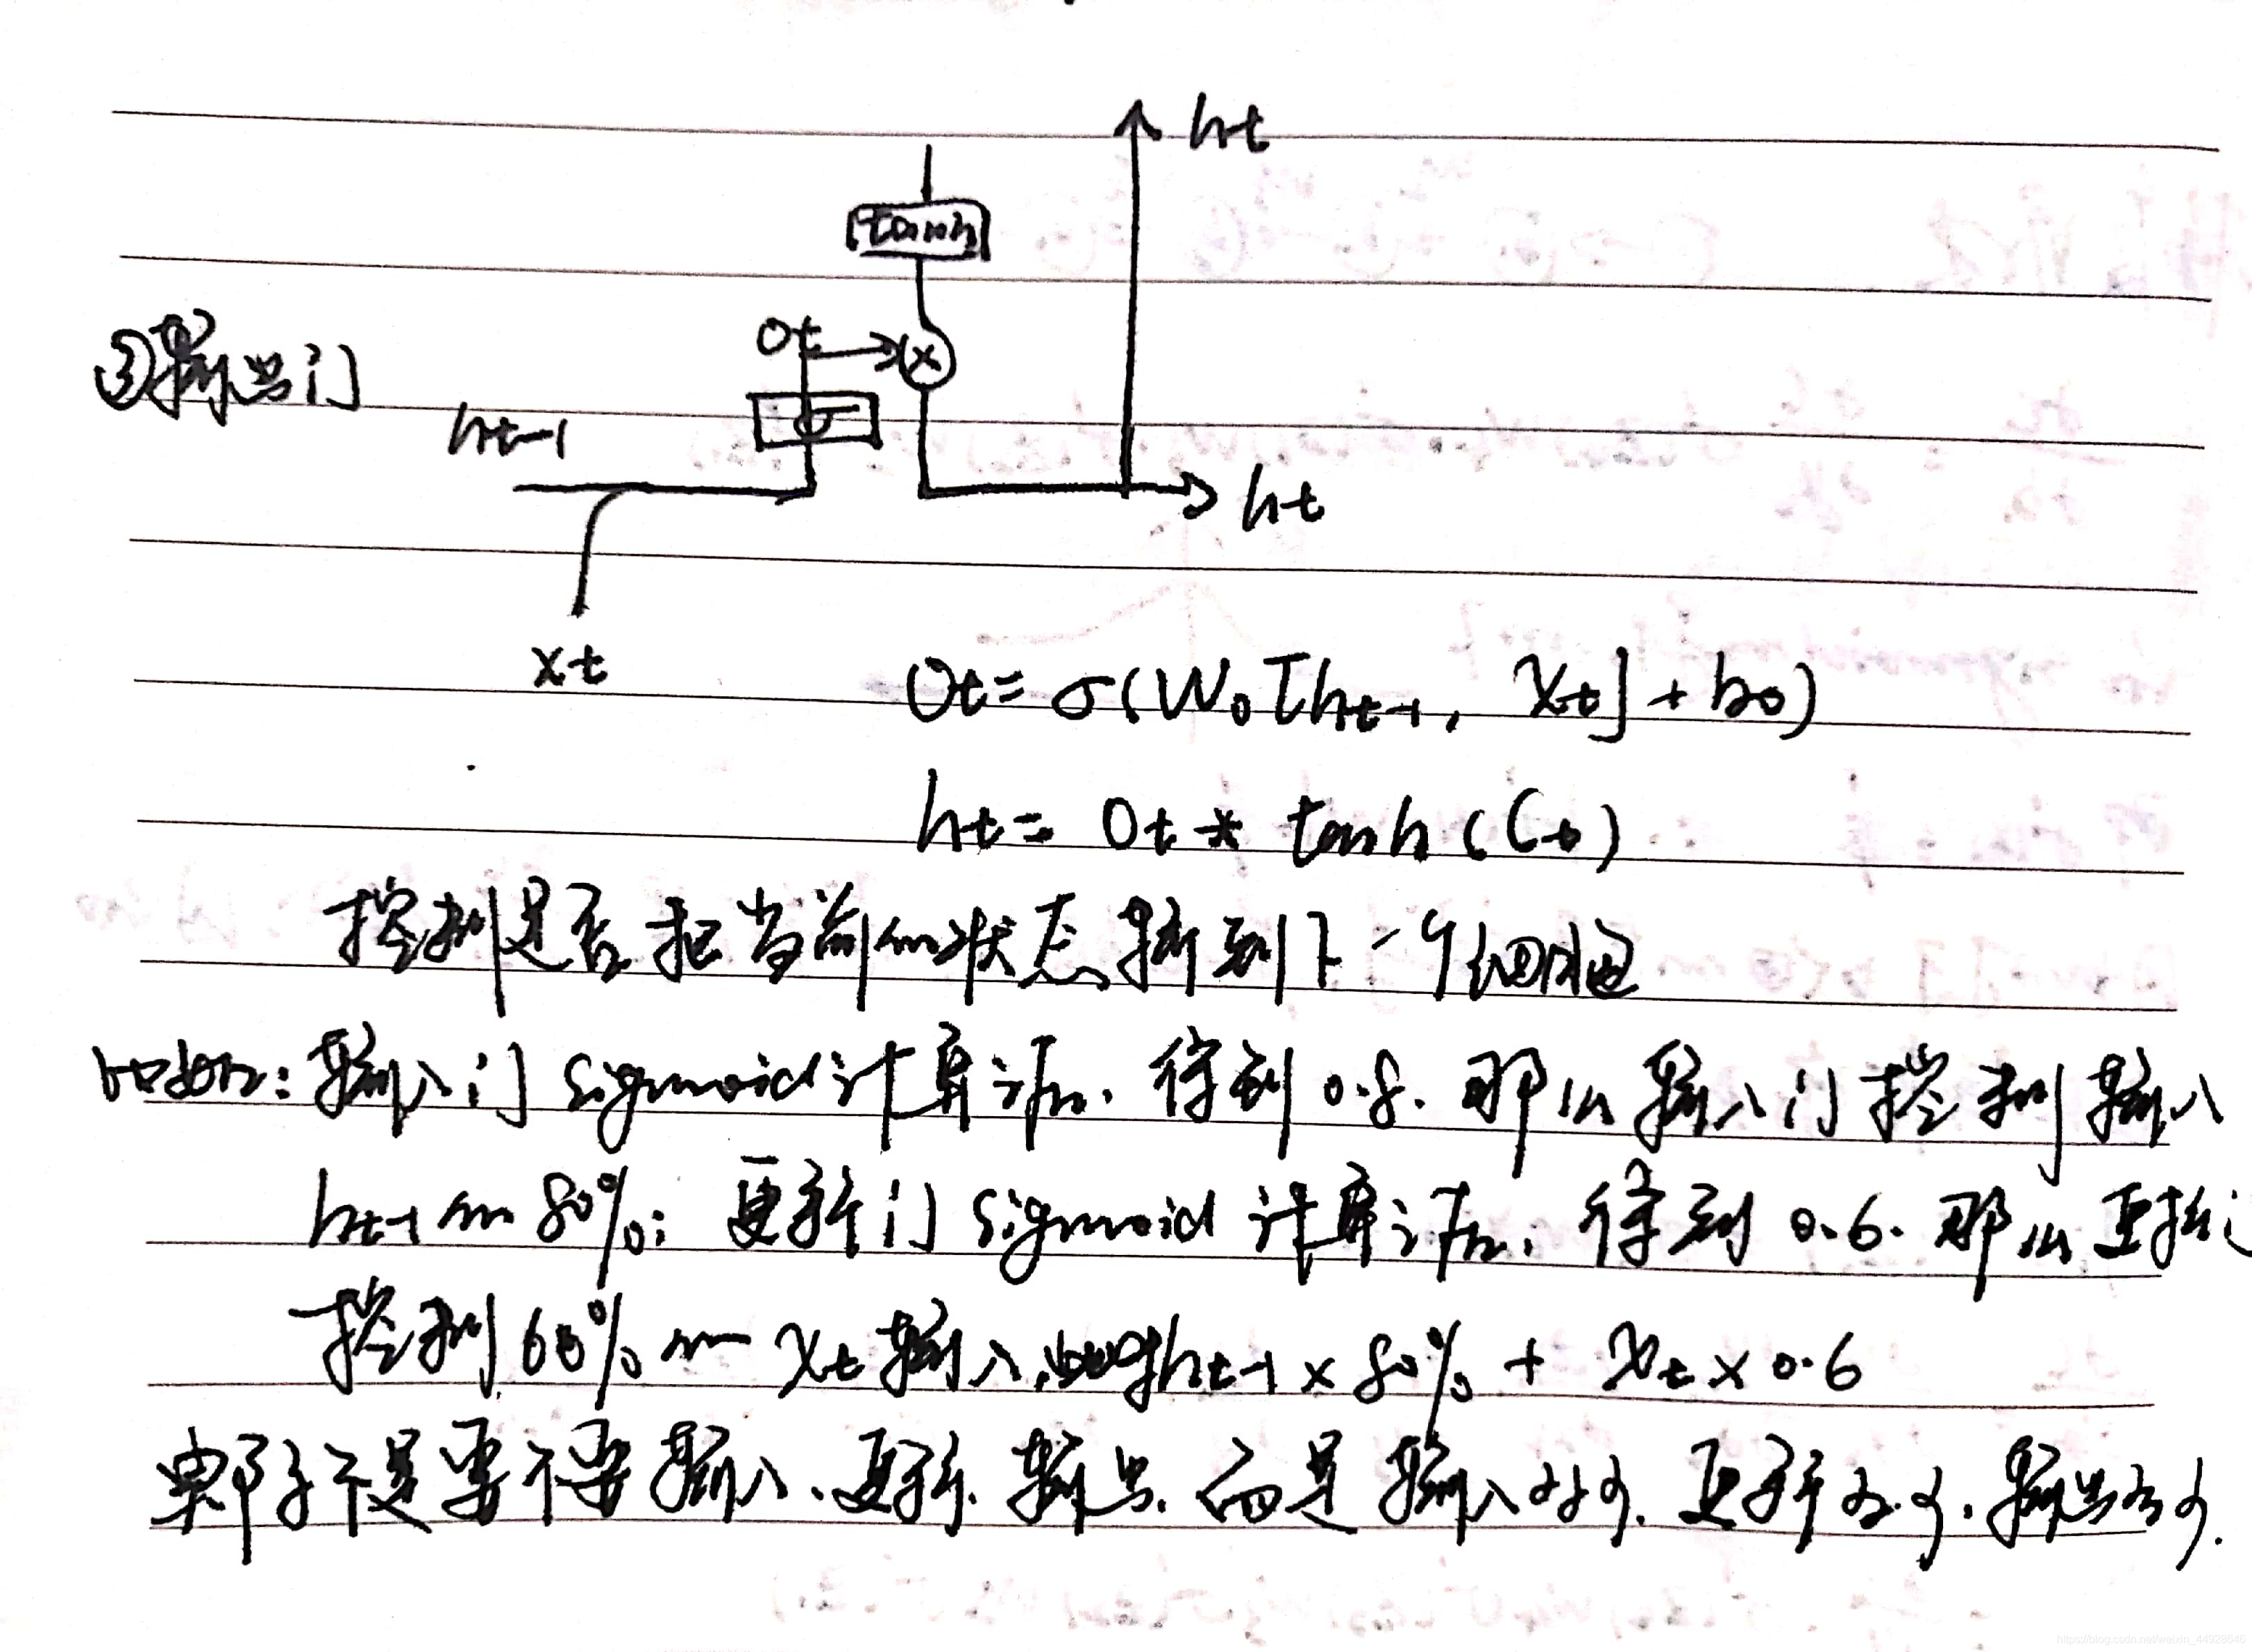 ht
tanh
Ot
③输出门
ht-1
σ
ht
xt
Ot = σ(Wo[ht-1, Xt] + bo)
ht = Ot * tanh(Ct)
控制是否把当前的状态输到下一个
比如: 输入门 sigmoid 计算完, 得到 0.8, 那么输入门控制输入
ht-1 的 80%; 更新门 sigmoid 计算完, 得到 0.6, 那么更新门
控制 60% 的 Xt 输入, ht-1 × 80% + Xt × 0.6
不是要不要输入、更新、输出, 而是输入多少, 更新多少, 输出多少.
https://blog.csdn.net/weixin_44928646